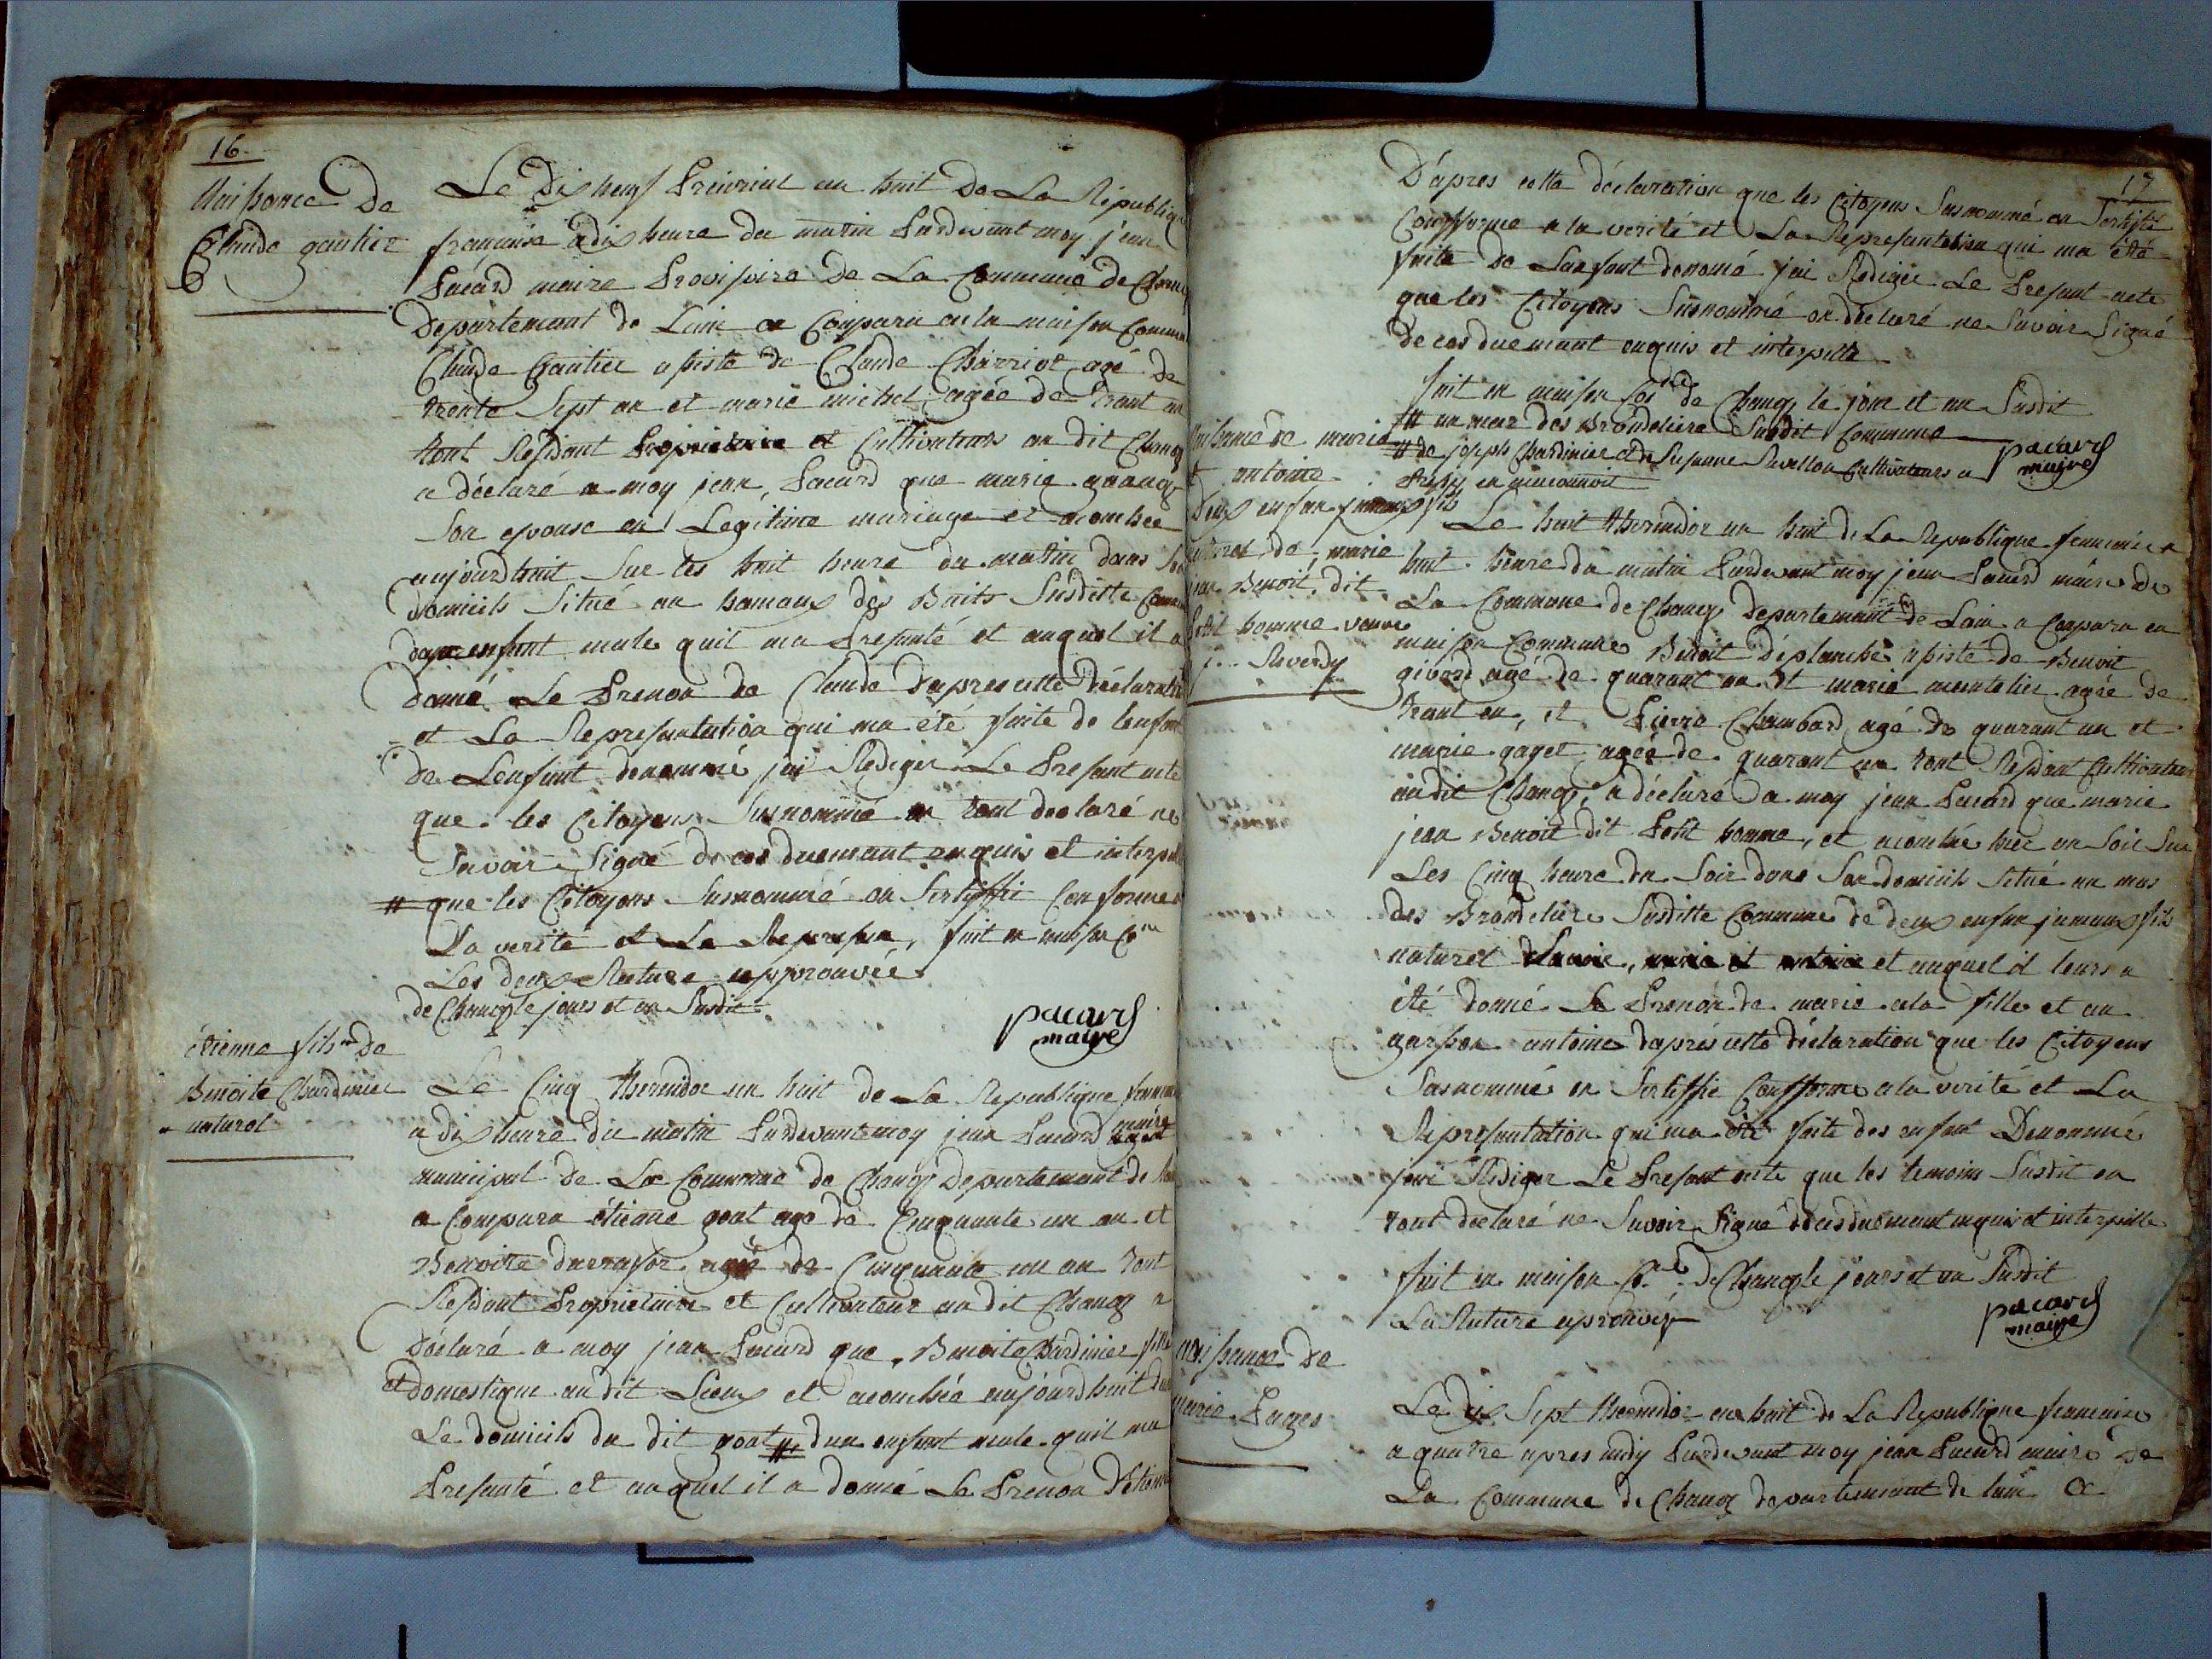 16
Naissance De
Claude gautier
Le Dix neuf Preirial an huit De La Republique
française a dix heure du matin Pardevant moy jean
Pacard maire Provisoire De La Commune de Chanoz
Departemant de Lain a Comparu en la maison Commune
Claude Gautier assisté de Claude Charriot agé de
trente Sept an et marie michel agée de trant an
tout Residant Propriétaire et Cultivateurs au dit Chanoz
a déclaré a moy jean Pacard que marie
Son epouse en Legitime mariage et acouchée
aujourdhuit Sur les huit heure du matin dans Son
domicile Situé au hamaux des Buits Susditte Commune
dun enfant male quil ma Presanté et auquel il a
donné Le Prenon de Claude Dapres cette déclaration
et La Represantation qui ma été faite de lenfant
de Lenfant denommé jai Rediger Le Presant acte
que les Citoyens Susnommé on tout declaré ne
Savoir Signé de ces duemant enquis et interpellé
# que les Citoyens Susnommé on Sertiffié Conforme a
La verité et La Represan, fait en maison Com
Les deux Rature approuvée
de Chanoz le jours et an Susdit
pacard
maire
étienne fils de
Benoite Chardinier
naturel
Le Cinq thermidor an huit de La Republique francaise
a dix heure du matin Pardevant moy jean Pacard maire
municipal de La Commune de Chanoz Departemant de Lain
a Comparu étienne goat agé de Cinquante un an et
Benoite agée de Cinquante un an tout
Residant Propriétaire et Cultivateur au dit Chanoz a
Déclaré a moy jean Pacard que Benoite Chardinier fille
et domestique au dit Lieux et acouchée aujourdhuit dans
Le domicile du dit goat # dun enfant male quil ma
Presanté et auquel il a donné Le Prenon Détienne
17
D'apres cette déclaration que les Citoyens Susnommé on Sertifié
Confforme a la verité et La Represantation qui ma été
faite de Lanfant denomé jai Rediger Le Presant acte
que les Citoyens Susnommé on déclaré ne Savoir Signé
de ces duemant enquis et interpellé
fait en maison Com de Chanoz le jour et an Susdit
# au mas des Brondeliere Susdit Commune
# de joseph Chardinier et de Susanne Revellon Cultivateurs a
pacard
maire
Naissance de marie
et antoine
Deux enfan jumaux fils
naturel de marie
jean Benoit dit
Petit homme veuve
Reverdy
Le huit thermidor an huit de La Republique francaise a
huit heure du matin Pardevant moy jean Pacard maire de
La Commune de Chanoz Departemant de Lain a Comparu en
maison Commune Benoit Déplanche assisté de Benoit
givord agé de quarant an et marie montelier agée de
trant an, et Pierre Chambard agé de quarant an et
marie gaget agée de quarant an tout Residant Cultivateur
audit Chanoz, a déclaré a moy jean Pacard que marie
jean Benoit dit Petit homme, et acouchée hier au Soir Sur
Les Cinq heure du Soir dans Son domicile Situé au mas
des Brondeliere Susditte Commune de deux enfan jumaux fils
naturel et auquel il leurs a
été donné Le Prenon de marie a la fille et au
garson antoine daprés cette déclaration que les Citoyens
Susnommé on Sertiffié Confforme a la verité et La
Represantation qui ma été faite des enfant Denommé
jai Rediger Le Presant acte que les temoins Susdit on
tout declaré ne Savoir Signé de ces duemant enquis et interpellé
fait en maison Com de Chanoz le jours et an Susdit
La Rature aprouvé
pacard
maire
naissance De
marie Pages
Le dix Sept thermidor an huit de La Republique francaise
a quatre apres midy Pardevant moy jean Pacard maire de
La Commune de Chanoz departemant de lain a